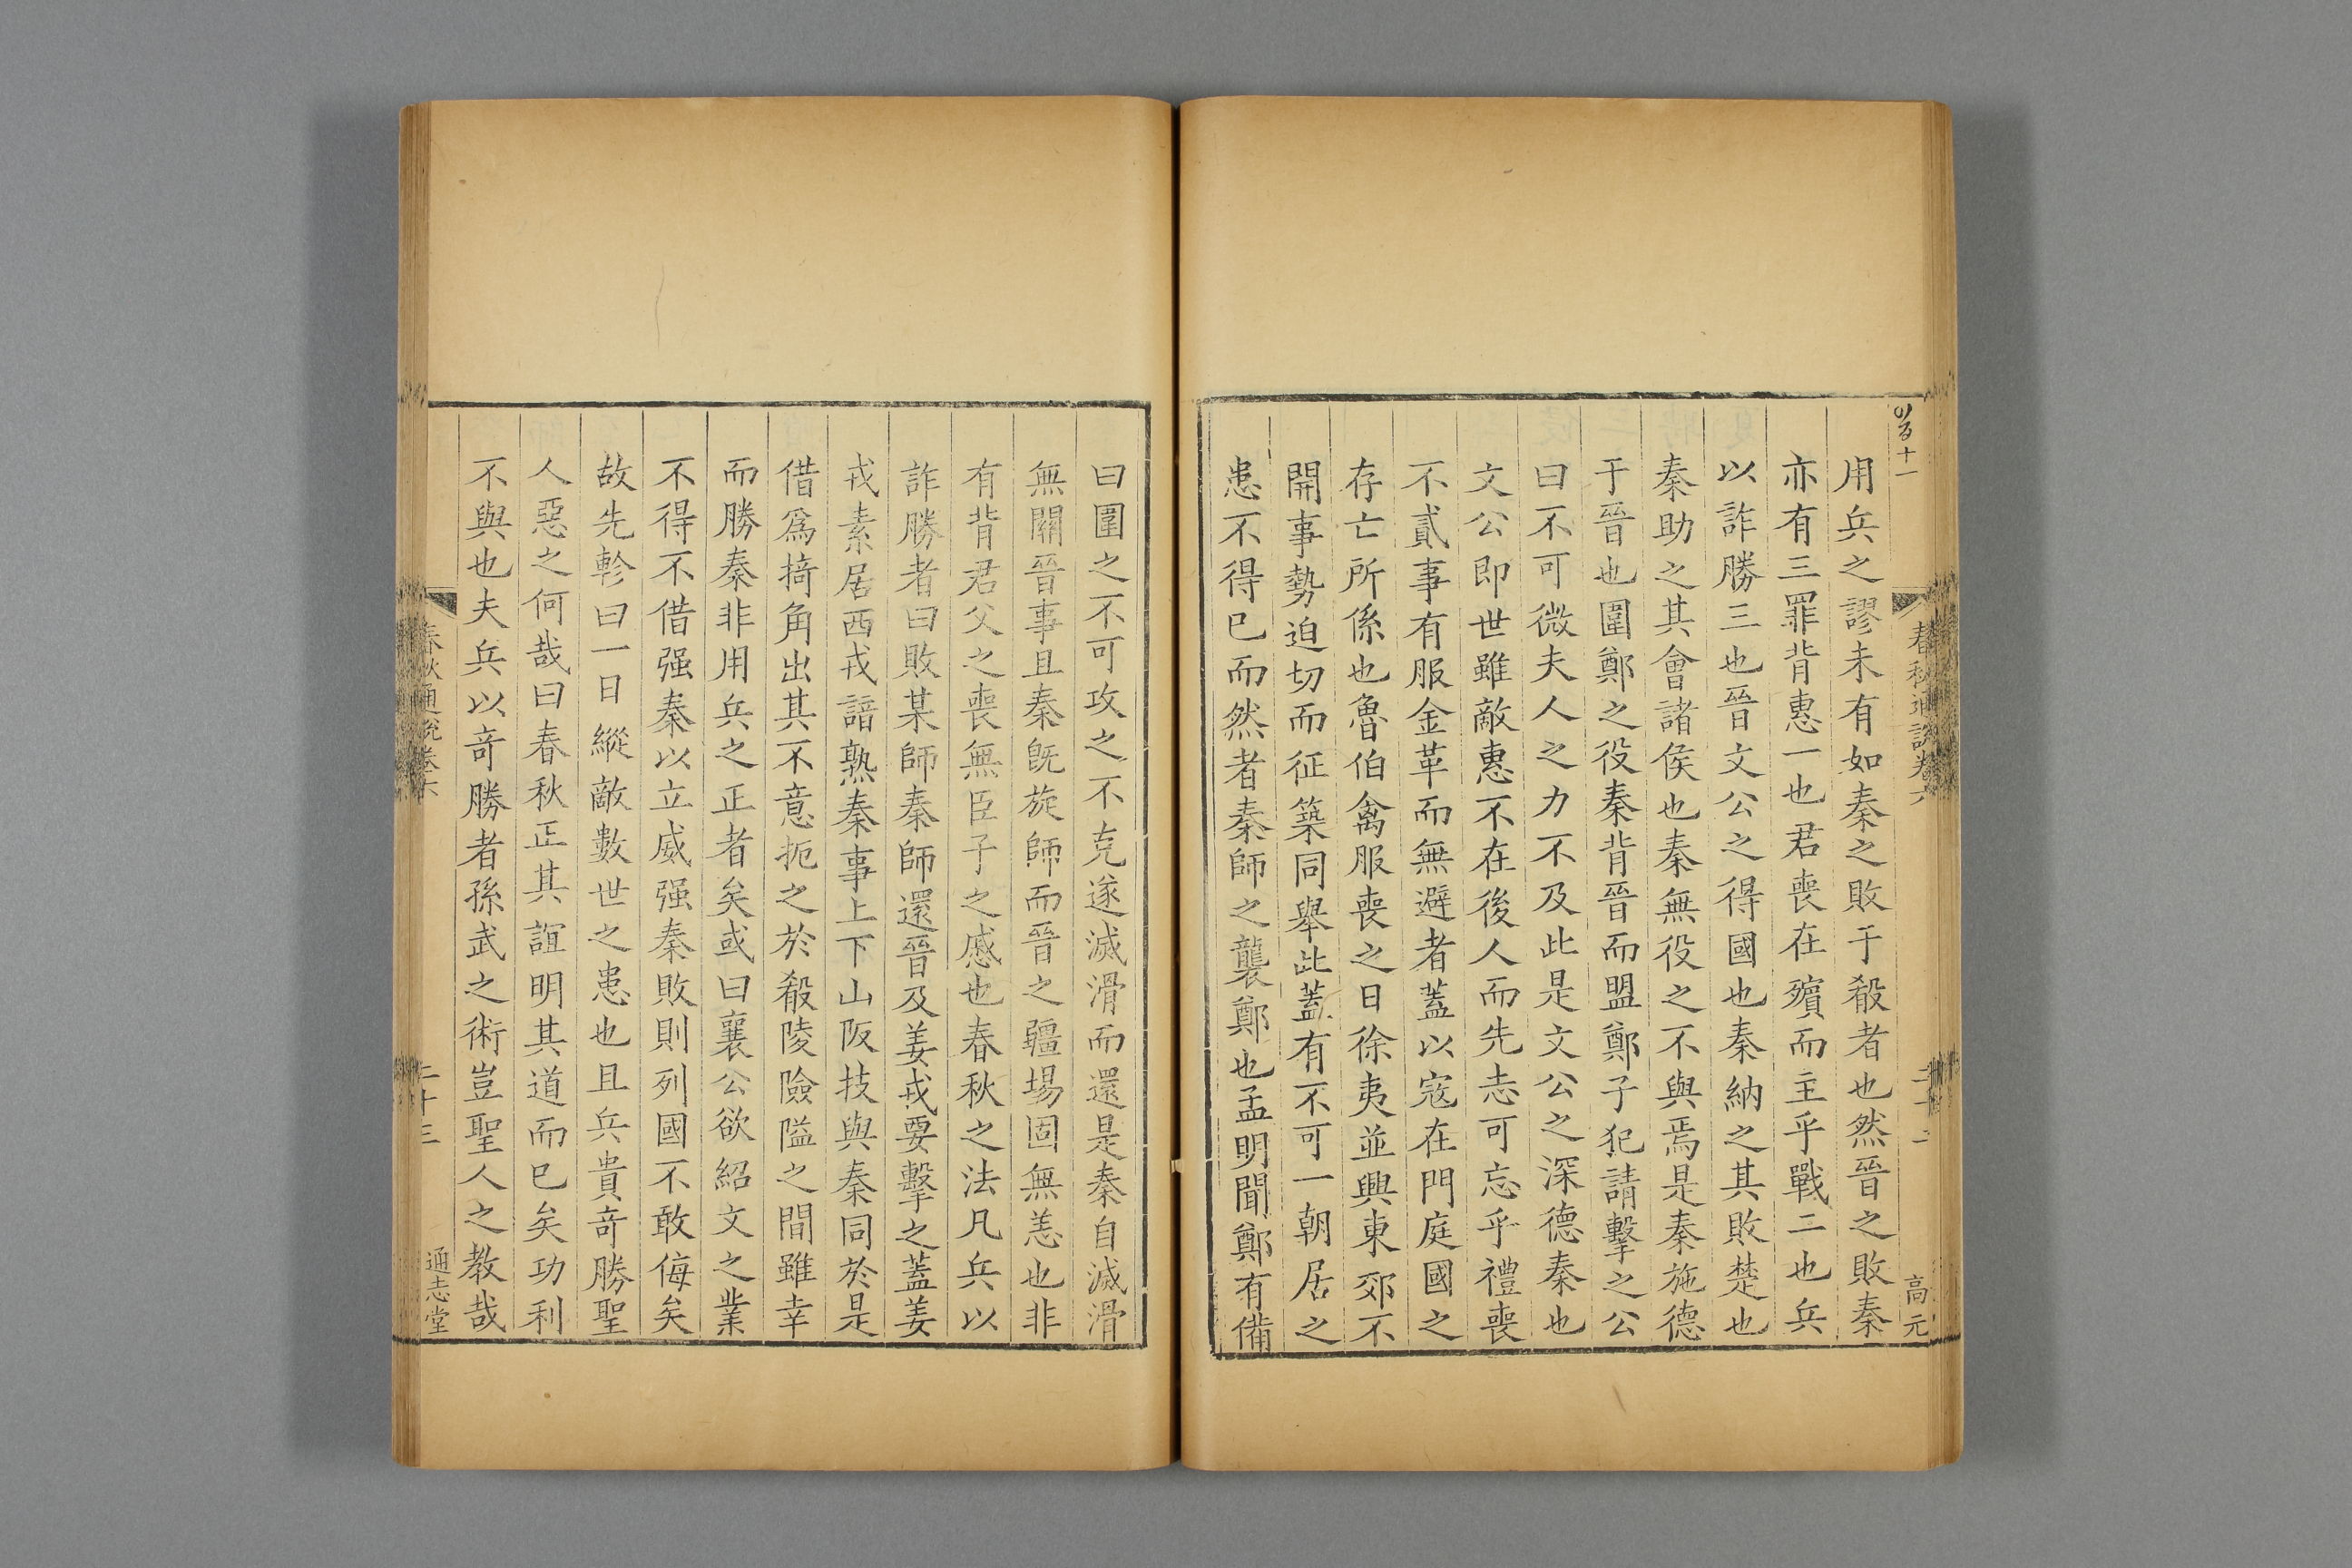 用兵之謬未有如秦之敗于殽者也然晉之敗秦
亦有三罪背惠一也君喪在殯而主乎戰二也兵
以詐勝三也晉文公之得國也秦納之其敗楚也
秦助之其會諸侯也秦無役之不與焉是秦施德
于晉也圍鄭之役秦背晉而盟鄭子犯請擊之公
曰不可微夫人之力不及此是文公之深德秦也
文公即世雖敵惠不在後人而先志可忘乎禮喪
不貳事有服金革而無避者蓋以寇在門庭國之
存亡所係也魯伯禽服喪之日徐夷並興東郊不
開事勢迫切而征築同舉此蓋有不可一朝居之
患不得已而然者秦師之襲鄭也孟明聞鄭有備
春秋通說卷六
高元
曰圍之不可攻之不克遂滅滑而還是秦自滅滑
無關晉事且秦旣旋師而晉之疆場固無恙也非
有背君父之喪無臣子之慼也春秋之法凡兵以
詐勝者曰敗某師秦師還晉及姜戎要擊之蓋姜
戎素居西戎諳熟秦事上下山阪技與秦同於是
借爲掎角出其不意扼之於殽陵險隘之間雖幸
而勝秦非用兵之正者矣或曰襄公欲紹文之業
不得不借强秦以立威强秦敗則列國不敢侮矣
故先軫曰一日縱敵數世之患也且兵貴奇勝聖
人惡之何哉曰春秋正其誼明其道而已矣功利
不與也夫兵以奇勝者孫武之術豈聖人之教哉
春秋通說卷六
二十三
通志堂